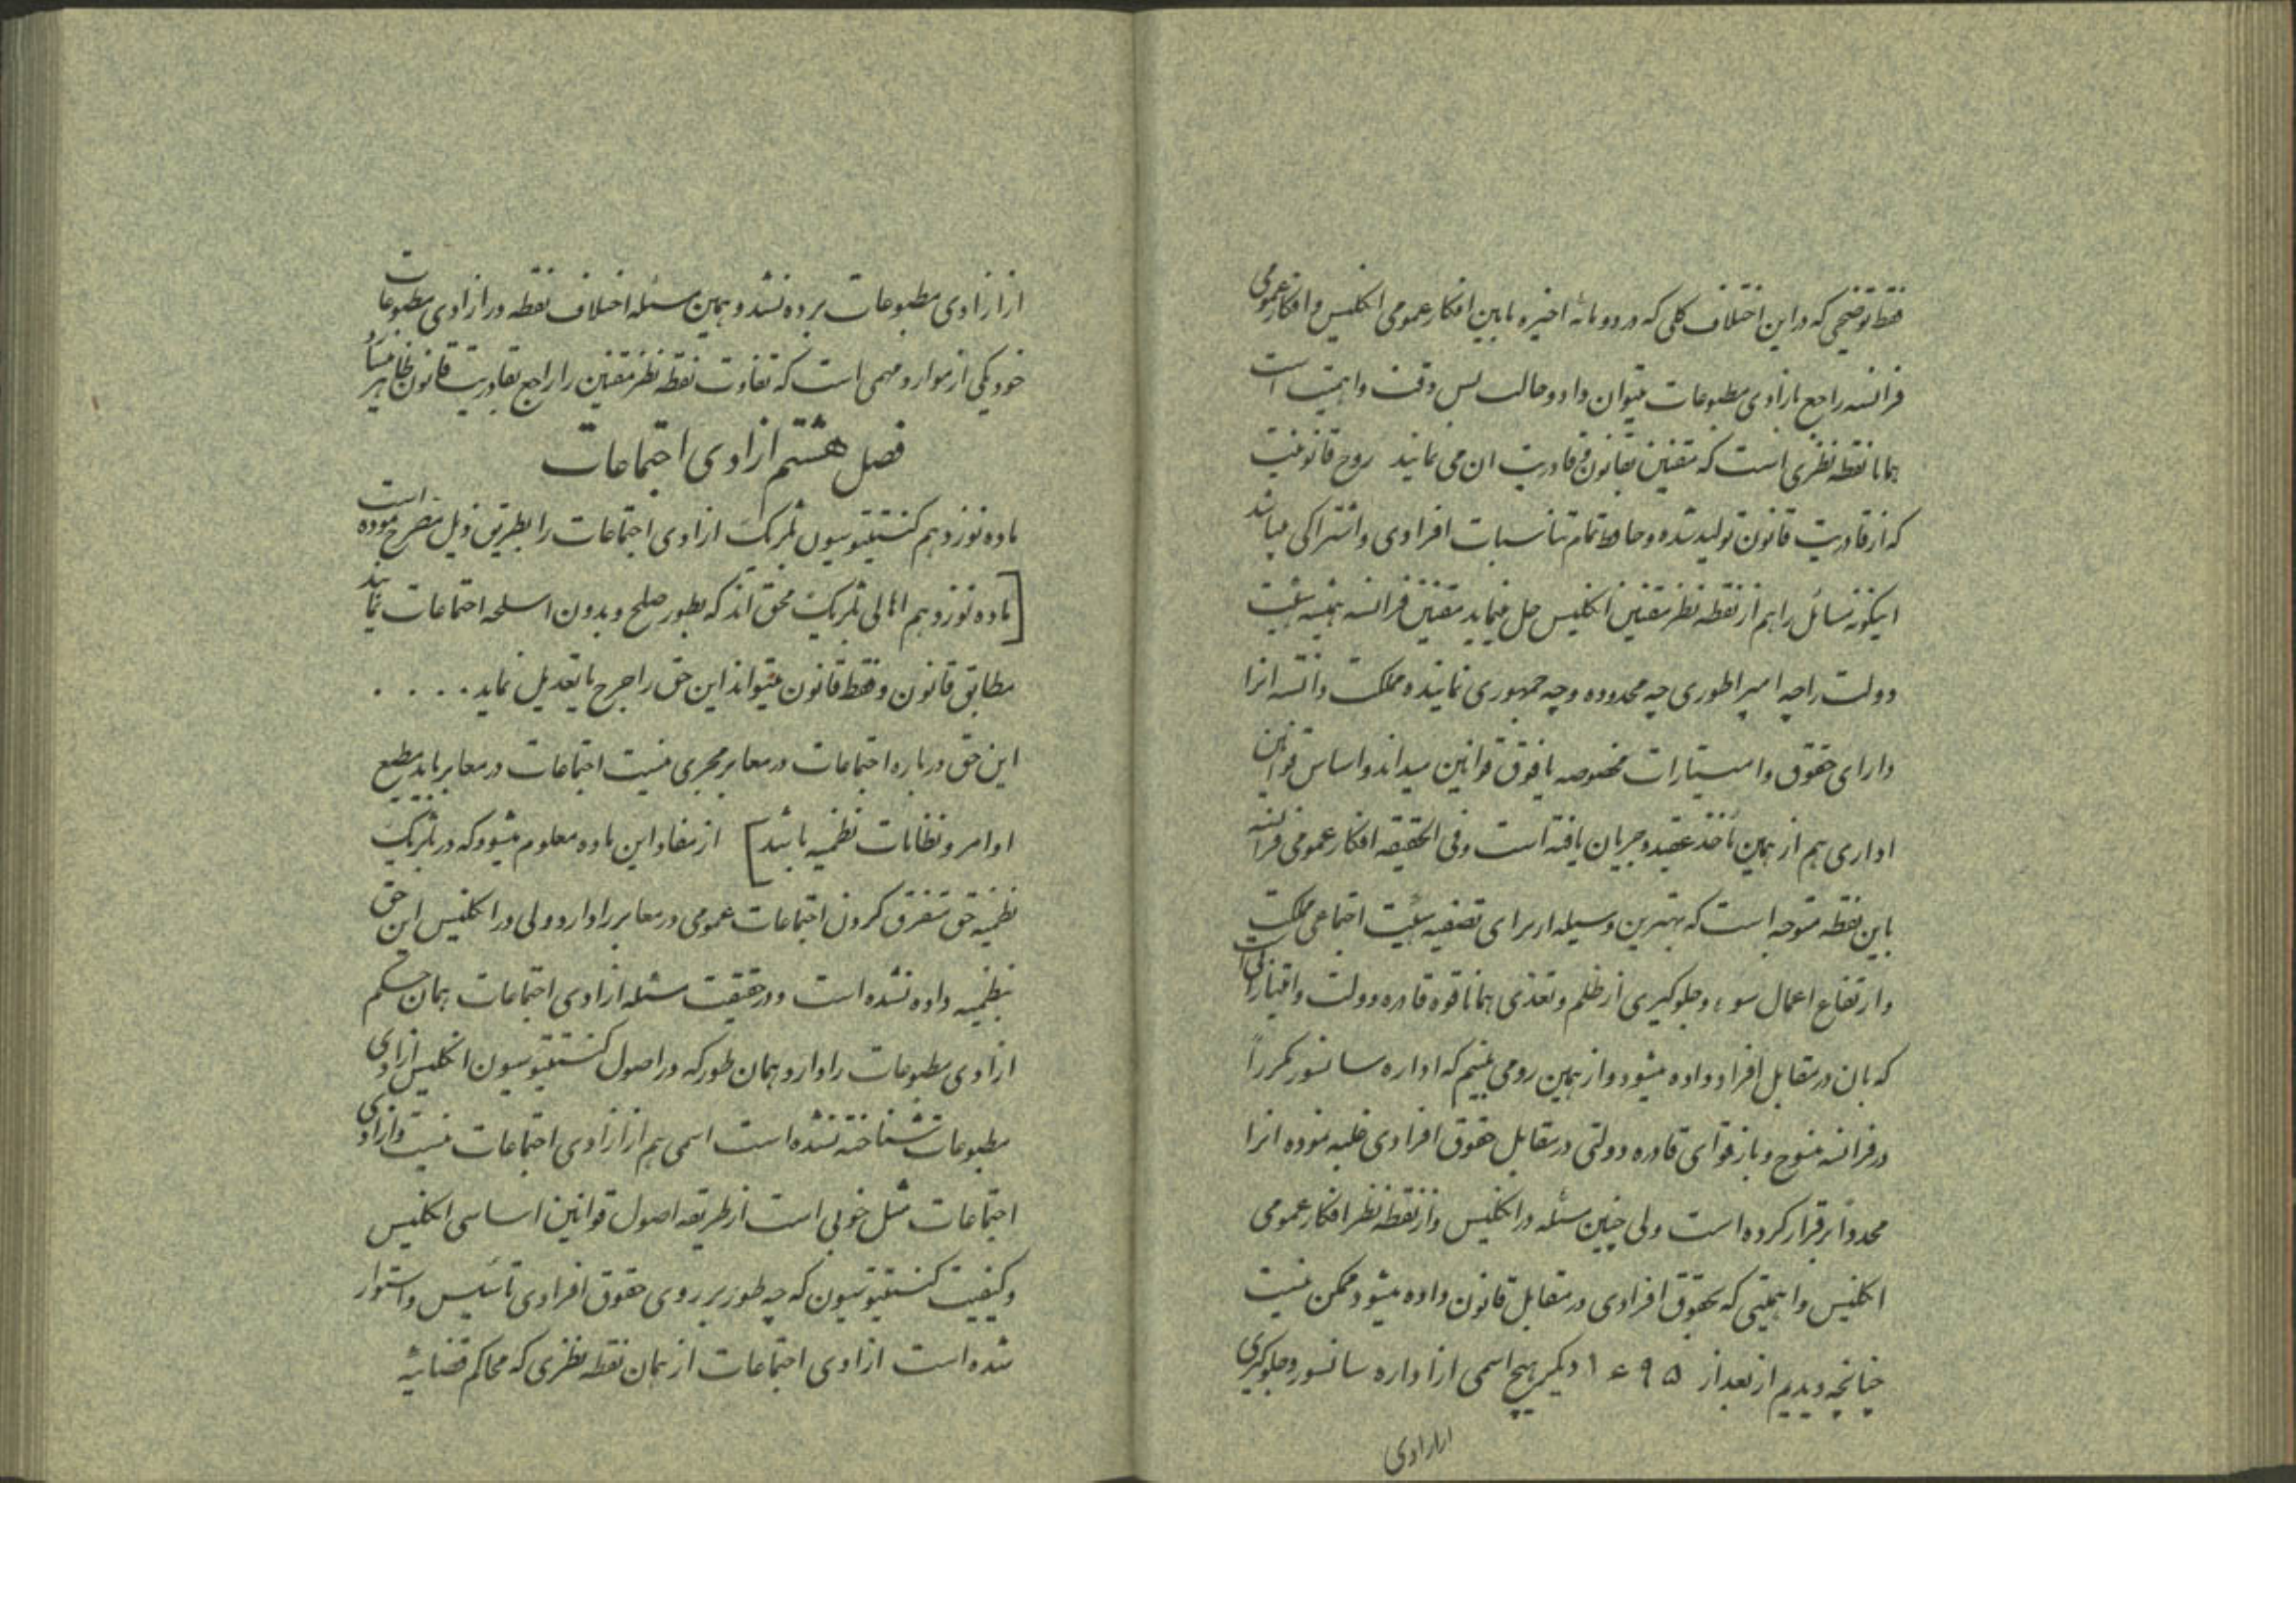 فقط توضیحی که در این اختلاف کلی که در دو مائه اخیره مابین افکار عمومی انگلیس و افکار عمومی
فرانسه راجع بازادی مطبوعات میتوان داد و حالت بس دقت و اهمیت است
همانا نقطه نظری است که مقنین بقانون و قادریت ان می نمایند روح قانونیت
که از قادریت قانون تولید شده و حافظ تمام تناسبات افرادی و اشتراکی میباشد
اینگونه مسائل را هم از نقطه نظر مقنین انگلیس حل مینماید مقنین فرانسه همیشه هیئت
دولت را چه امپراطوری چه محدوده و چه جمهوری نماینده مملکت دانسته انرا
دارای حقوق و امتیازات مخصوصه مافوق قوانین میداند و اساس قوانین
اداری هم از همین مأخذ عقیده جریان یافته است و فی الحقیقه افکار عمومی فرانسه
باین نقطه متوجه است که بهترین وسیله از برای تصفیه هیئت اجتماعی مملکت
و ارتفاع اعمال سوء و جلوگیری از ظلم و تعدی همانا قوه قاهره دولت و اقتداراتی است
که بان در مقابل افراد داده میشود و از همین رو می بینیم که اداره سانسور مکرراً
در فرانسه منسوخ و باز قوای قادره دولتی در مقابل حقوق افرادی غلبه نموده انرا
مجدداً برقرار کرده است ولی چنین مسئله در انگلیس و از نقطه نظر افکار عمومی
انگلیس و اهمیتی که بحقوق افرادی در مقابل قانون داده میشود ممکن نیست
چنانچه دیدیم از بعد از ۱۶۹۵ دیگر هیچ اسمی از اداره سانسور و جلوگیری
ازازادی
از ازادی مطبوعات برده نشد و همین مسئله اختلاف نقطه در ازادی مطبوعات
خود یکی از موارد مهمی است که تفاوت نقطه نظر مقنین را راجع بقادریت قانون ظاهر میسازد
فصل هشتم ازادی اجتماعات
ماده نوزدهم کنستیتوسیون بلژیک ازادی اجتماعات را بطریق ذیل مصرح نموده است
[ماده نوزدهم اهالی بلژیک محق اند که بطور صلح و بدون اسلحه اجتماعات نمایند
مطابق قانون و فقط قانون میتواند این حق را جرح یا تعدیل نماید . . . .
این حق درباره اجتماعات در معابر مجری نیست اجتماعات در معابر باید مطیع
اوامر و نظامات نظمیه باشد] از مفاد این ماده معلوم میشود که در بلژیک
نظمیه حق متفرق کردن اجتماعات عمومی در معابر را دارد ولی در انگلیس این حق
بنظمیه داده نشده است و در حقیقت مسئله ازادی اجتماعات همان حکم
ازادی مطبوعات را دارد و همان طور که در اصول کنستیتوسیون انگلیس ازادی
مطبوعات شناخته نشده است اسمی هم از ازادی اجتماعات نیست و ازادی
اجتماعات مثل خوبی است از طریقه اصول قوانین اساسی انگلیس
و کیفیت کنستیتوسیون که چه طور بر روی حقوق افرادی تأسیس و استوار
شده است ازادی اجتماعات از همان نقطه نظری که محاکم قضائیه